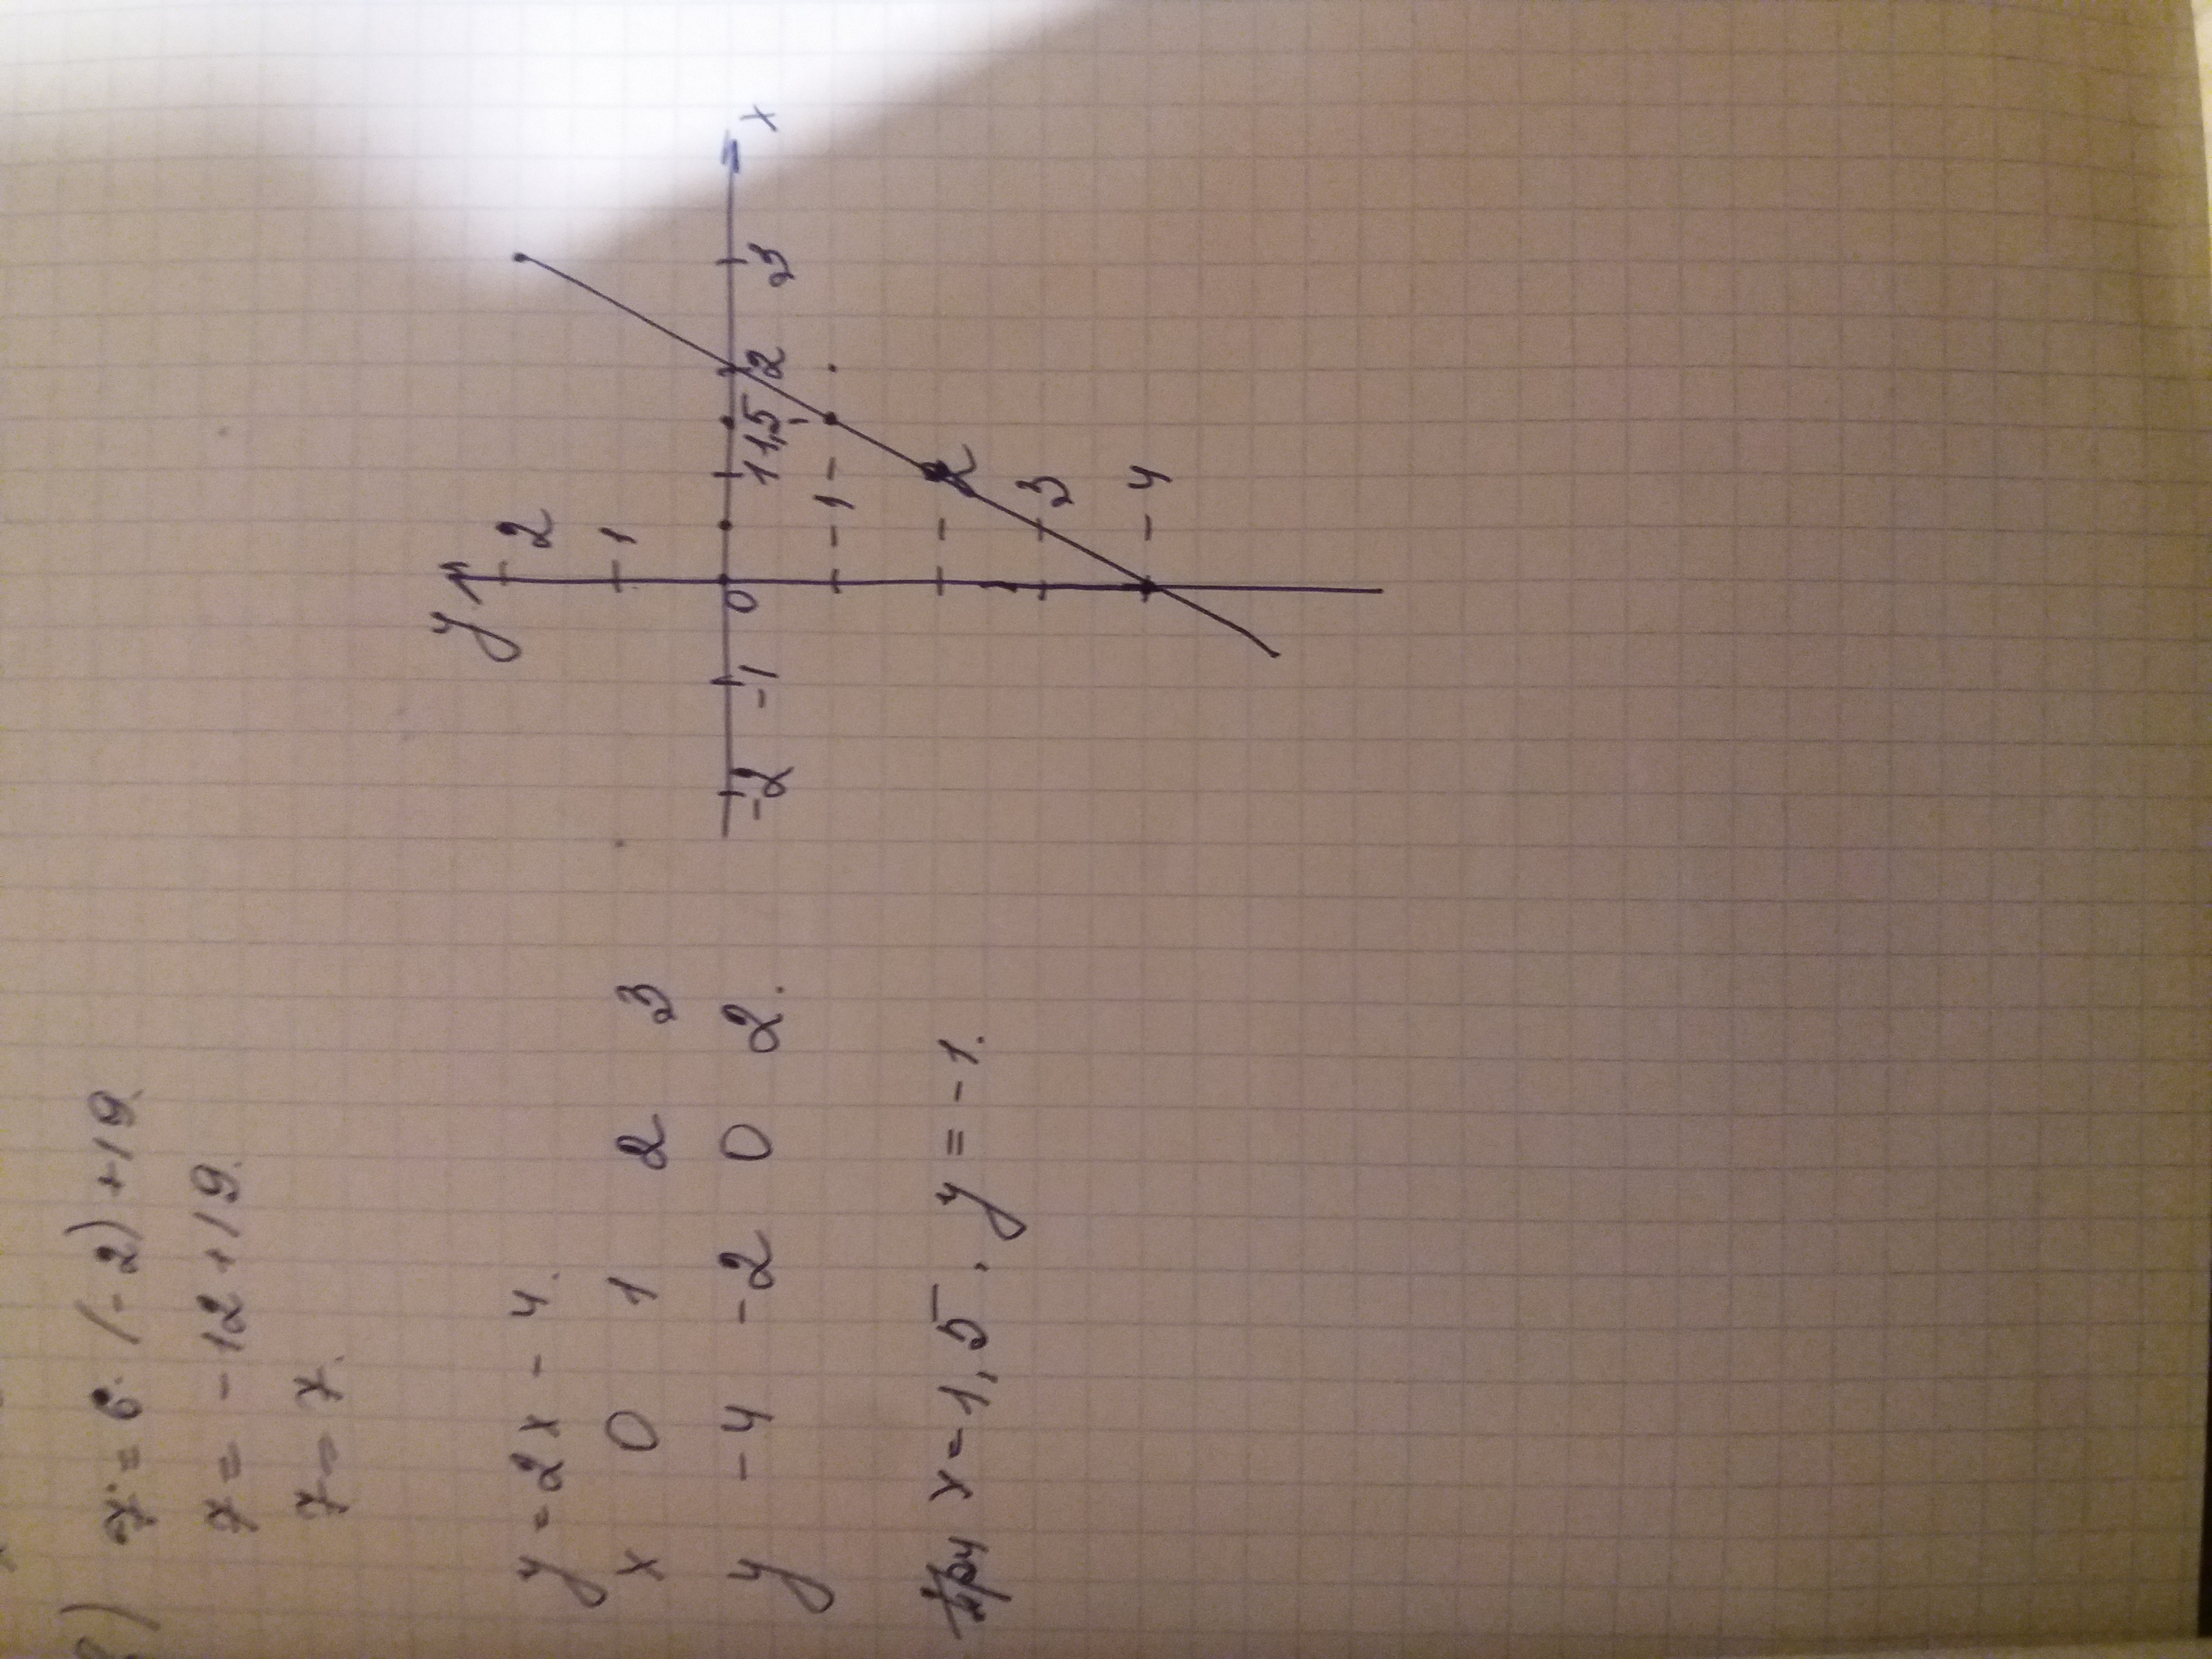 2)
7 = 6 · (-2) + 19.
7 = -12 + 19.
7 = 7.
y = 2x - 4.
x 0 1 2 3
y -4 -2 0 2.
При x = 1,5, y = -1.
y
2
1
-2 -1 0 1 1,5 2 3 x
-1
-2
-3
-4